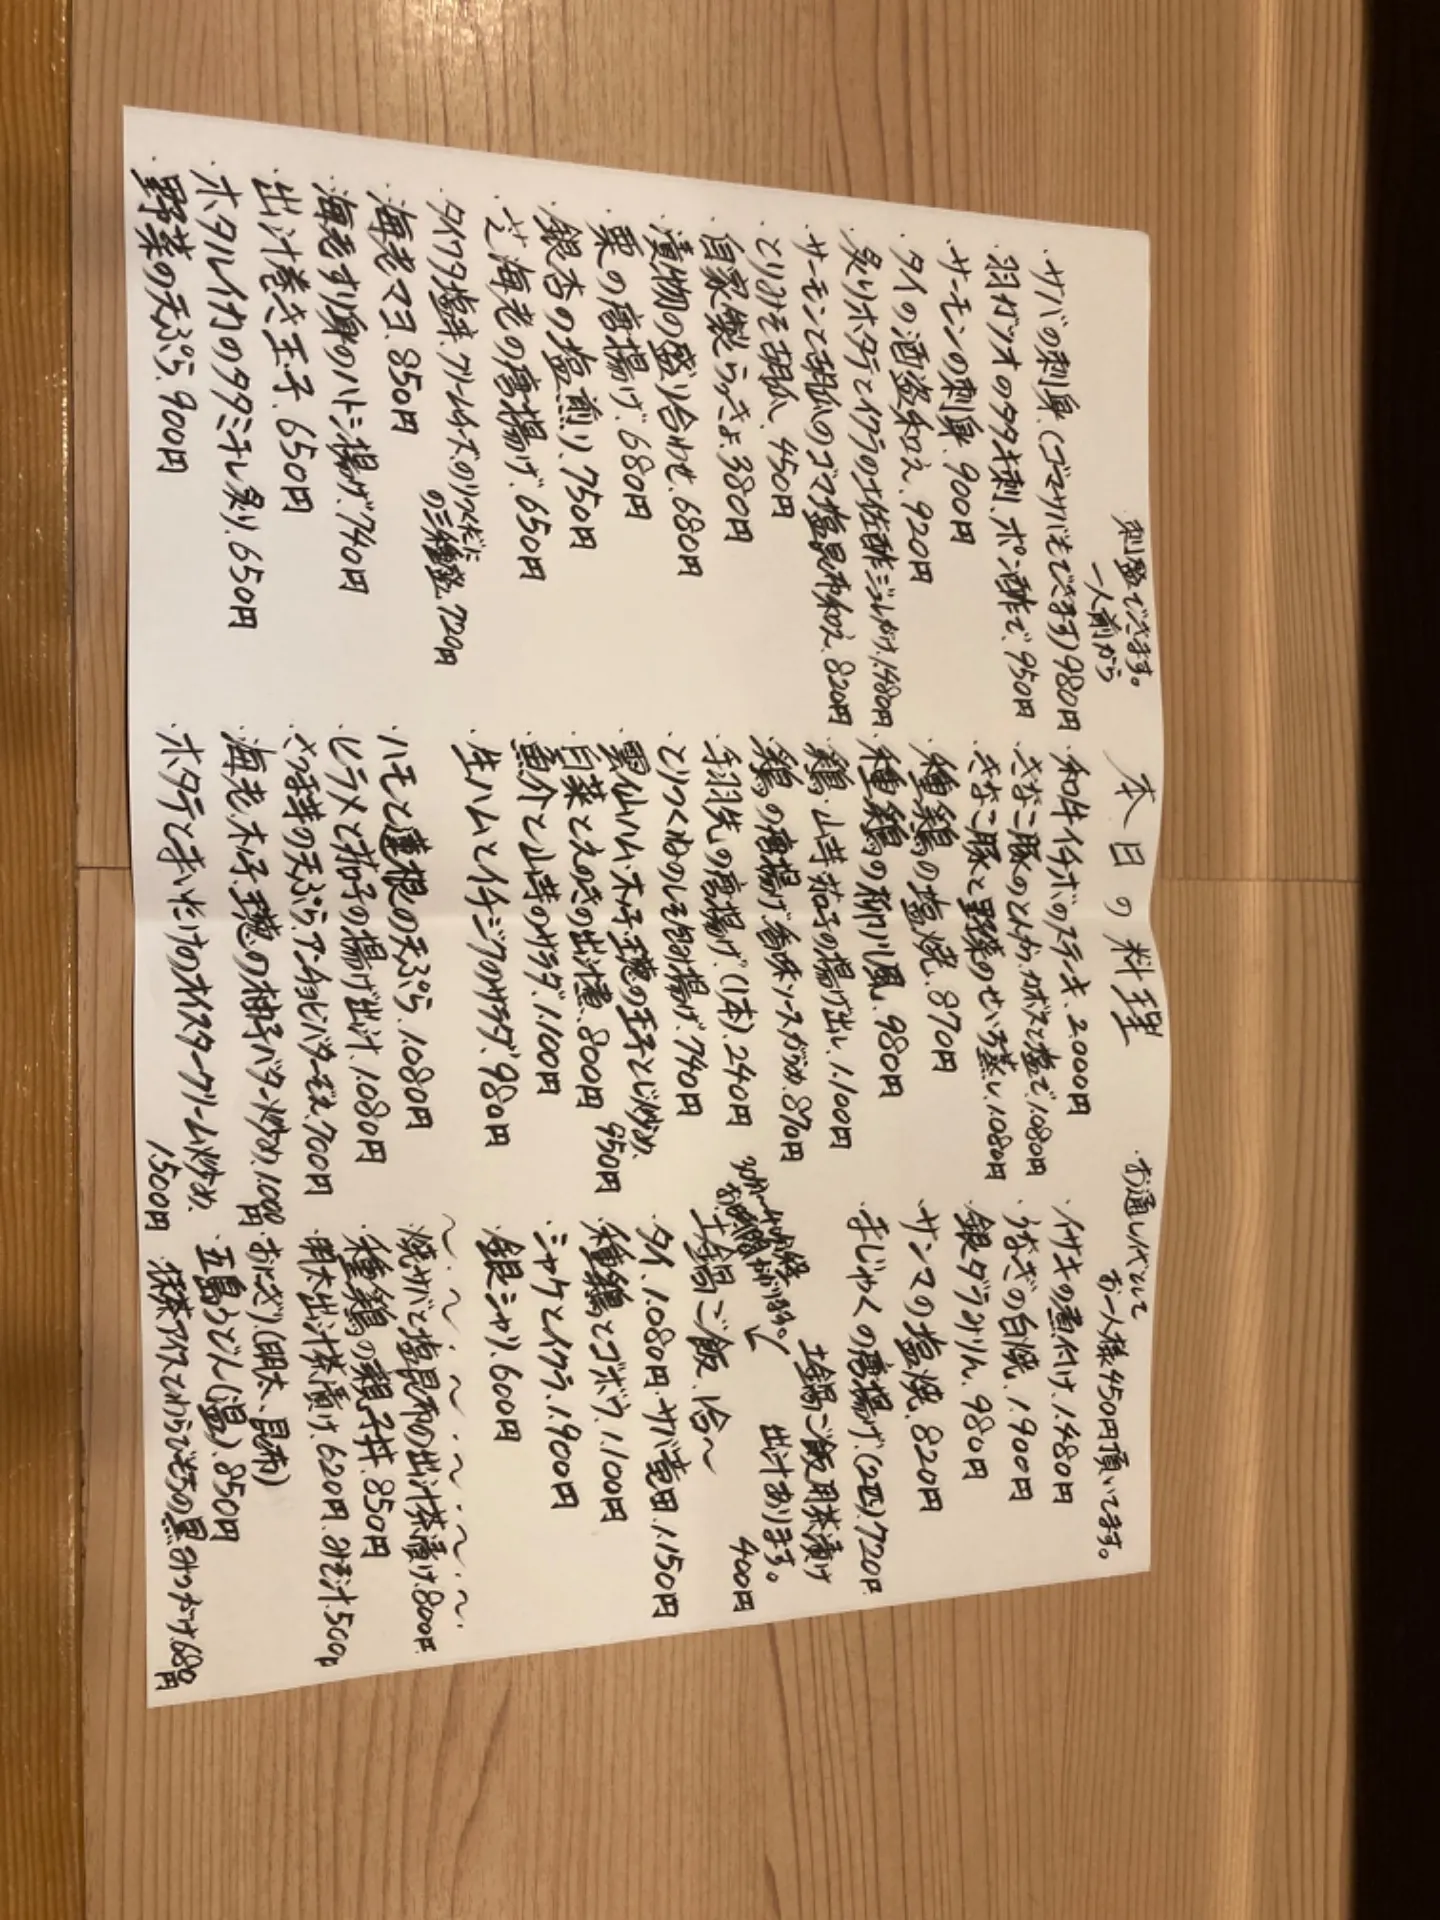 本日の料理
刺盛できます。
一人前から
・お通し代として
お一人様450円頂いてます。
・サバの刺身.(ゴマサバもできます)980円
・羽ガツオのタタキ刺.ポン酢で.950円
・サーモンの刺身.900円
・タイの酒盗和え.920円
・炙りホタテとイクラの土佐酢ジュレがけ.1.480円
・サーモンと胡瓜のゴマ塩昆布和え.820円
・とりみそ胡瓜.450円
・自家製らっきょ.380円
・漬物の盛り合わせ.680円
・栗の唐揚げ.680円
・銀杏の塩煎り.750円
・芝海老の唐揚げ.650円
の三種盛.720円
・海老マヨ.850円
・海老すり身のハトシ揚げ.740円
・出汁巻き玉子.650円
・ホタルイカのタタミ干し炙り.650円
・野菜の天ぷら.900円
・和牛イチボのステーキ.2.000円
・きなこ豚のとんかつ.カボスと塩で.1.080円
・きなこ豚と野菜のせいろ蒸し.1.080円
・種鶏の塩焼.870円
・種鶏の柳川風.980円
・鶏.山芋.茄子の揚げ出し.1.100円
・鶏の唐揚げ.香味ソースがらめ.870円
・手羽先の唐揚げ.(1本).240円
・とりつくねのしそ包み揚げ.740円
・雲仙ハム.木子.玉葱の玉子とじ炒め.
950円
・白菜とえのきの出汁煮.800円
・魚介と山芋のサラダ.1.100円
・生ハムとイチジクのサラダ.980円
・ハモと蓮根の天ぷら.1.080円
・ヒラメと茄子の揚げ出汁.1.080円
・さつま芋の天ぷら.アンチョビバターぞえ.700円
・海老.木子.玉葱の柚子バター炒め.1.000円
・ホタテとまいたけのオイスタークリーム炒め.
1.500円
・イサキの煮付け.1.480円
・うなぎの白焼.1.900円
・銀ダラみりん.980円
・サンマの塩焼.820円
・まじゃくの唐揚げ.(2匹).720円.
土鍋ご飯用茶漬け
出汁あります。
400円
30分〜40分程
お時間かかります。
土鍋ご飯.1合〜
・タイ.1.080円.サバ壱田.1.150円
・種鶏とゴボウ.1.100円
・シャケとイクラ.1.900円
・銀シャリ.600円
〜.〜.〜.〜.〜.〜.〜.
・焼サバと塩昆布の出汁茶漬け.800円.
・種鶏の親子丼.850円
・明太出汁茶漬け.620円.みそ汁.500円
・おにぎり(明太、昆布)
・五島うどん(温).850円
・抹茶アイスとわらびもちの黒みつがけ.680円